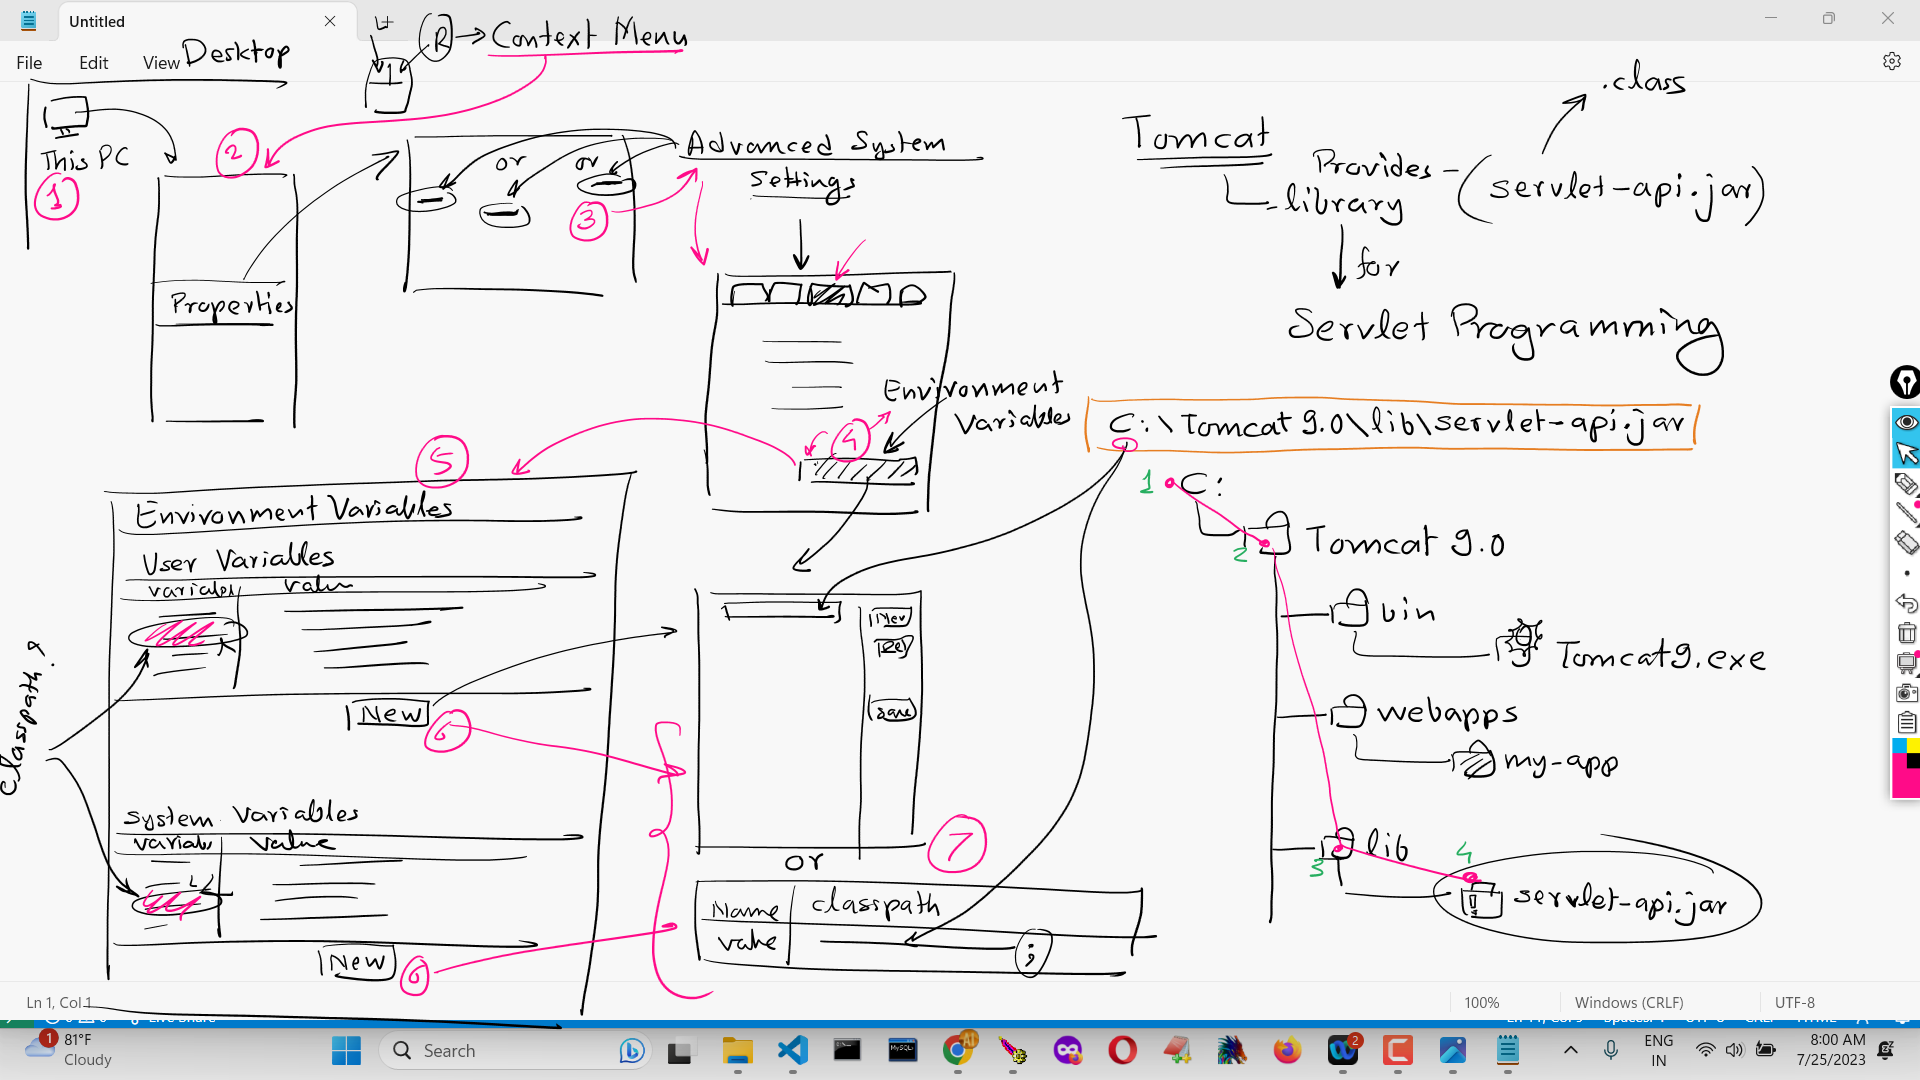 Untitled
File Edit View
Desktop
R
Context Menu
This PC
1
2
Properties
or
or
3
Advanced System
Settings
Environment
Variables
4
5
Environment Variables
User Variables
value
New
6
Classpath
System Variables
value
New
6
New
Save
7
or
Name classpath
value
;
Tomcat
Provides
library
(servlet-api.jar)
.class
for
Servlet Programming
C:\Tomcat 9.0\lib\servlet-api.jar
1 C:
2 Tomcat 9.0
bin
Tomcat9.exe
webapps
my-app
3 lib
4
servlet-api.jar
Ln 1, Col 1 100% Windows (CRLF) UTF-8
1 81°F
Cloudy
Search
2
ENG
IN
8:00 AM
7/25/2023